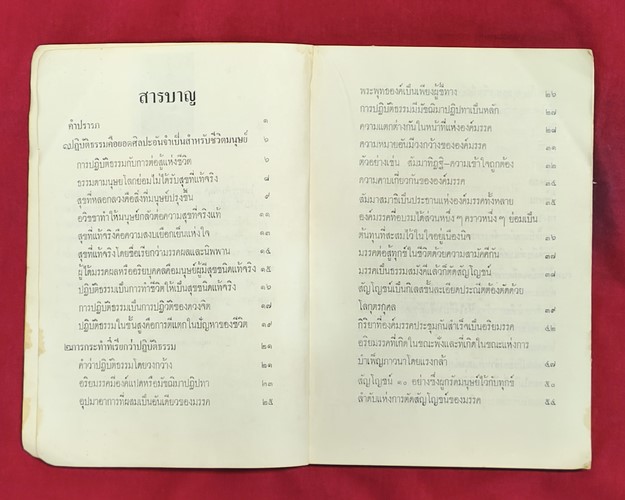 สารบาญ
คำปรารภ ๑
๑.ปฏิบัติธรรมคือยอดศิลปะอันจำเป็นสำหรับชีวิตมนุษย์ ๖
การปฏิบัติธรรมกับการต่อสู้แห่งชีวิต ๖
ธรรมดามนุษย์โลกย่อมไม่ได้รับสุขที่แท้จริง ๘
สุขที่หลอกลวงคือสิ่งที่มนุษย์ปรุงขึ้น ๙
อวิชชาทำให้มนุษย์กลัวต่อความสุขที่จริงแท้ ๑๑
สุขที่แท้จริงคือความสงบเยือกเย็นแห่งใจ ๑๓
สุขที่แท้จริงโดยชื่อเรียกว่ามรรคผลและนิพพาน ๑๔
ผู้ได้มรรคผลหรืออริยบุคคลคือมนุษย์ผู้มีสุขชนิดแท้จริง ๑๕
ปฏิบัติธรรมเป็นการทำชีวิตให้เป็นสุขชนิดแท้จริง ๑๖
การปฏิบัติธรรมเป็นการปฏิวัติของดวงจิต ๑๗
ปฏิบัติธรรมในชั้นสูงคือการตีแตกในปัญหาของชีวิต ๑๙
๒.การกระทำที่เรียกว่าปฏิบัติธรรม ๒๑
คำว่าปฏิบัติธรรมโดยวงกว้าง ๒๑
อริยมรรคมีองค์แปดหรือมัชฌิมาปฏิปทา ๒๓
อุปมาอาการที่ผสมเป็นอันเดียวของมรรค ๒๕
พระพุทธองค์เป็นเพียงผู้ชี้ทาง ๒๖
การปฏิบัติธรรมมีมัชฌิมาปฏิปทาเป็นหลัก ๒๗
ความแตกต่างกันในหน้าที่แห่งองค์มรรค ๒๘
ความหมายอันมีวงกว้างขององค์มรรค ๓๑
ตัวอย่างเช่น สัมมาทิฏฐิ-ความเข้าใจถูกต้อง ๓๓
ความคาบเกี่ยวกันขององค์มรรค
สัมมาสมาธิเป็นประธานแห่งองค์มรรคทั้งหลาย ๓๕
องค์มรรคที่อบรมได้ส่วนหนึ่ง ๆ คราวหนึ่ง ๆ ย่อมเป็น
ต้นทุนที่สะสมไว้ในใจอยู่เนืองนิจ ๓๖
มรรคต่อสู้ทุกข์ในชีวิตด้วยความสามัคคีกัน ๓๗
มรรคเป็นธรรมสมังคีแล้วก็ตัดสัญโญชน์ ๓๘
สัญโญชน์เป็นกิเลสชั้นละเอียดประณีตต้องตัดด้วย
โลกุตรกุศล ๓๙
กิริยาที่องค์มรรคประชุมกันสำเร็จเป็นอริยมรรค ๔๒
อริยมรรคที่เกิดในขณะฟังและที่เกิดในขณะแห่งการ
บำเพ็ญภาวนาโดยแรงกล้า ๔๗
สัญโญชน์ ๑๐ อย่างซึ่งผูกรัดมนุษย์ไว้กับทุกข์ ๕๐
ลำดับแห่งการตัดสัญโญชน์ของมรรค ๕๔